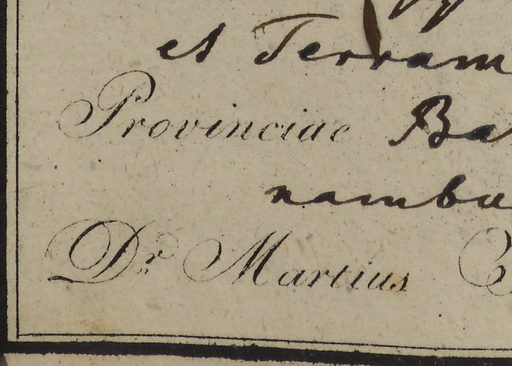 et Terram
Provinciae Ba
nambu
Dr. Martius